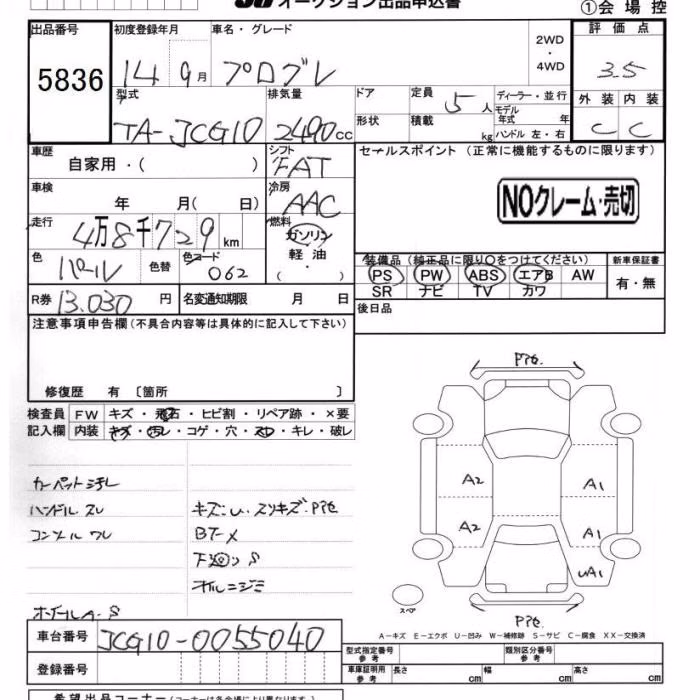 オークション出品申込書
①会場控
出品番号
5836
初度登録年月
14 9月
車名・グレード
プログレ
2WD
・
4WD
評価点
3.5
外装 内装
C C
型式
TA-JCG10
排気量
2490cc
ドア
形状
定員
5人
積載
kg
ディーラー・並行
モデル
年式 年
ハンドル 左・右
車歴
自家用・( )
シフト
FAT
セールスポイント (正常に機能するものに限ります)
車検
年 月( 日)
冷房
AAC
NOクレーム・売切
走行
4万8千729km
燃料
ガソリン
軽油
・( )
色
パール
色替
色コード
062
装備品 (純正品に限り○をつけてください)
PS PW ABS エアB AW
SR ナビ TV カワ
新車保証書
有・無
R券 13.030 円
名変通知期限 月 日
後日品
注意事項申告欄(不具合内容等は具体的に記入して下さい)
修復歴 有 〔箇所 〕
検査員
記入欄
FW キズ・飛石・ヒビ割・リペア跡・×要
内装 キズ・汚レ・コゲ・穴・スレ・キレ・破レ
カーペット汚れ
ハンドル スレ
コンソール ワレ
キズ:U、スリキズ:P他
BT-X
下廻りS
ホイールA・S
P他.
A2
A1
A2
A1
UA1
P他.
スペア
A-キズ E-エクボ U-凹み W-補修跡 S-サビ C-腐食 XX-交換済
車台番号
JCG10-0055040
登録番号
型式指定番号
参考
類別区分番号
参考
車庫証明用
参考
長さ cm
幅 cm
高さ cm
希望出品コーナー(コーナーは各会場により異なります)